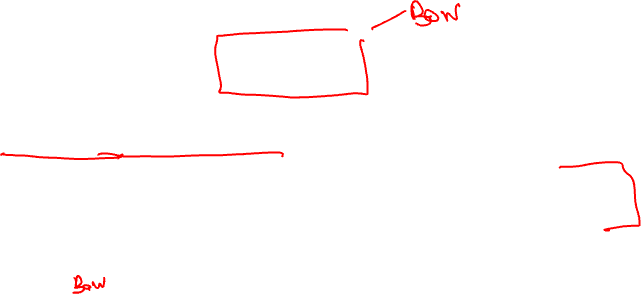 Bow
Bow